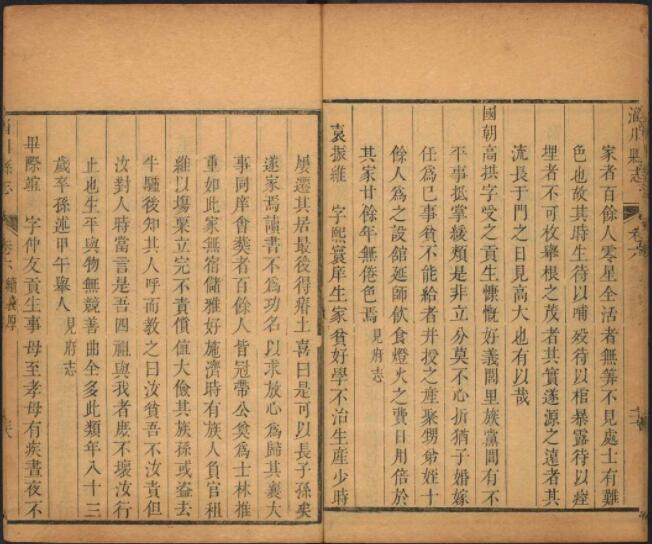 淄川縣志
卷六
家者百餘人零星全活者無筭不見處士有難
色也故其時生待以哺殁待以棺暴露待以瘞
埋者不可枚舉根之茂者其實遂源之遠者其
流長于門之日見高大也有以哉
國朝高拱字受之貢生慷慨好義閭里族黨間有不
平事抵掌緩頰是非立分莫不心折猶子婚嫁
任爲己事貧不能給者幷授之產聚甥弟姪十
餘人爲之設館延師飲食燈火之費日用倍於
其家廿餘年無倦色焉見府志
袁振雒 字熙寰庠生家貧好學不治生產少時
屢遷其居最後得瘠土喜曰是可以長子孫矣
遂家焉讀書不爲功名以求放心爲歸其襄大
事同庠會葬者百餘人皆冠帶公奠爲士林推
重如此家無宿儲雅好施濟時有族人負官租
維以塲粟立完不責償值大儉其族孫或盜去
牛驢後知其人呼而教之曰汝貧吾不汝責但
汝對人時當言是吾四祖與我者庶不壞汝行
止也生平與物無競善曲全多此類年八十三
歲卒孫述甲午舉人見府志
畢際竩 字仲友貢生事母至孝母有疾晝夜不
淄川縣志
卷六 續義厚